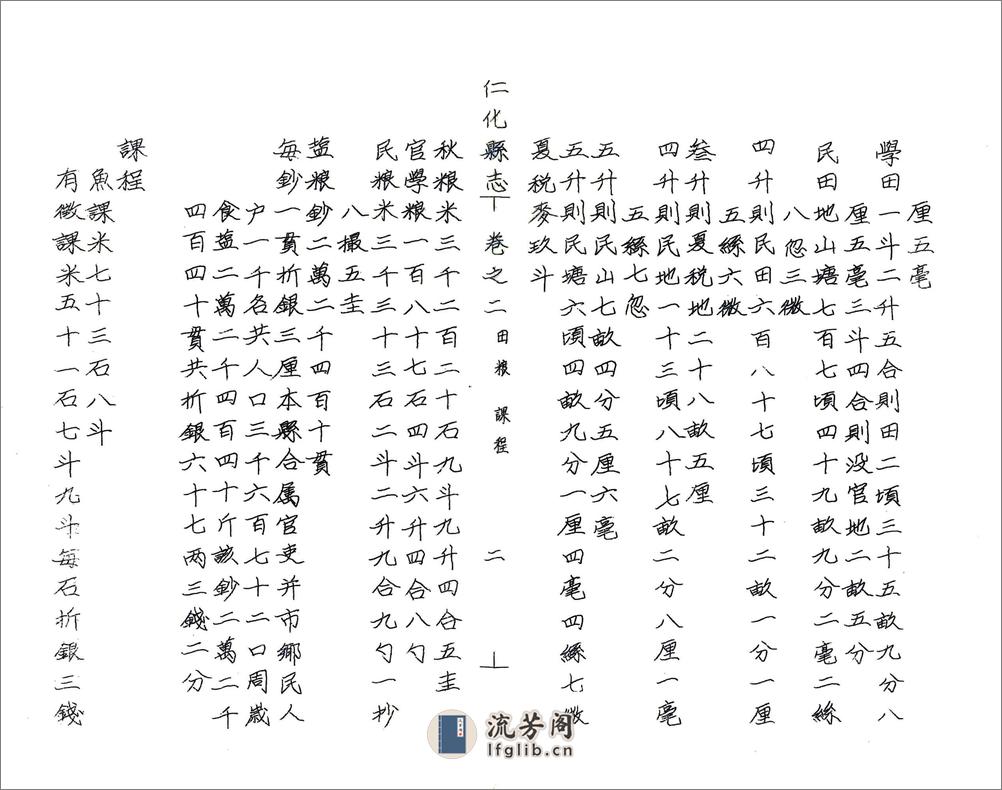 厘五毫
學田一斗二升五合則田二頃三十五畝九分八
厘五毫三斗四合則没官地二畝五分
民田地山塘七百七頃四十九畝九分二毫二絲
八忽三微
四升則民田六百八十七頃三十二畝一分一厘
五絲六微
叁升則夏税地二十八畝五厘
四升則民地一十三頃八十七畝二分八厘一毫
五絲七忽
五升則民山七畝四分五厘六毫
五升則民塘六頃四畝九分一厘四毫四絲七微
夏税麥玖斗
仁化縣志 卷之二 田粮 課程 二
秋粮米三千二百二十石九斗九升四合五圭
官學粮一百八十七石四斗六升四合八勺
民粮米三千三十三石二斗二升九合九勺一抄
八撮五圭
盐粮鈔二萬二千四百十貫
每鈔一貫折銀三厘本縣合属官吏并市鄉民人
户一千名共人口三千六百七十二口周歲
食盐二萬二千四百四十斤該鈔二萬二千
四百四十貫共折銀六十七两三錢二分
課程
魚課米七十三石八斗
有徵課米五十一石七斗九斗每石折銀三錢
流芳阁
lfglib.cn